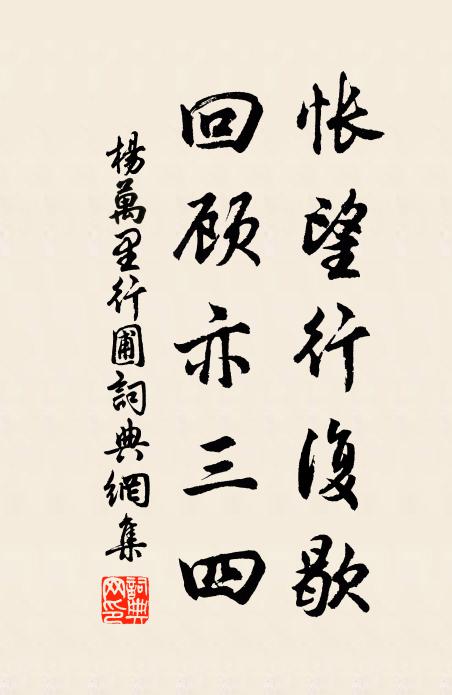 悵望行復歇
回顾亦三四
楊萬里行圃詞典網集
詞典網印